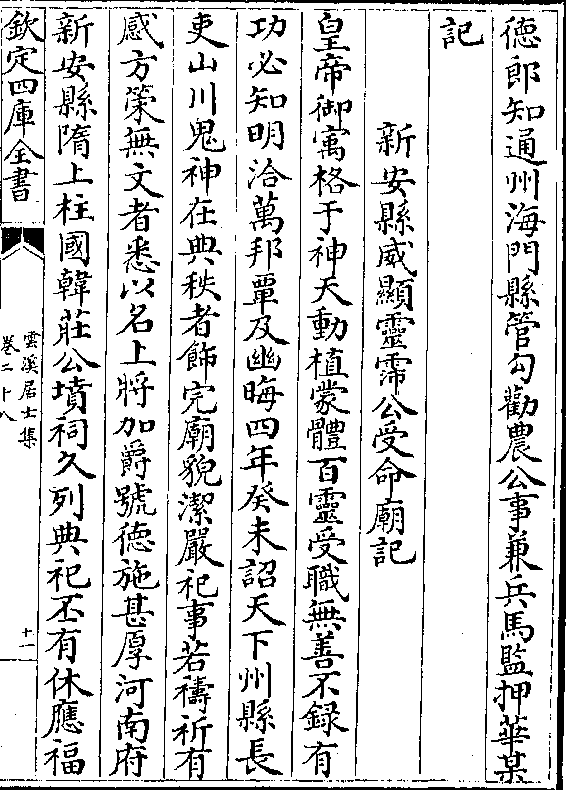 德郎知通州海門縣管勾勸農公事兼兵馬監押華某
記
新安縣威顯靈霈公受命廟記
皇帝御寓格于神天動植蒙體百靈受職無善不録有
功必知明洽萬邦覃及幽晦四年癸未詔天下州縣長
吏山川鬼神在典秩者飾完廟貌潔嚴祀事若禱祈有
感方策無文者悉以名上將加爵號徳施甚厚河南府
新安縣隋上柱國韓莊公墳祠久列典祀丕有休應福
欽定四庫全書
雲溪居士集
卷二十八
十一